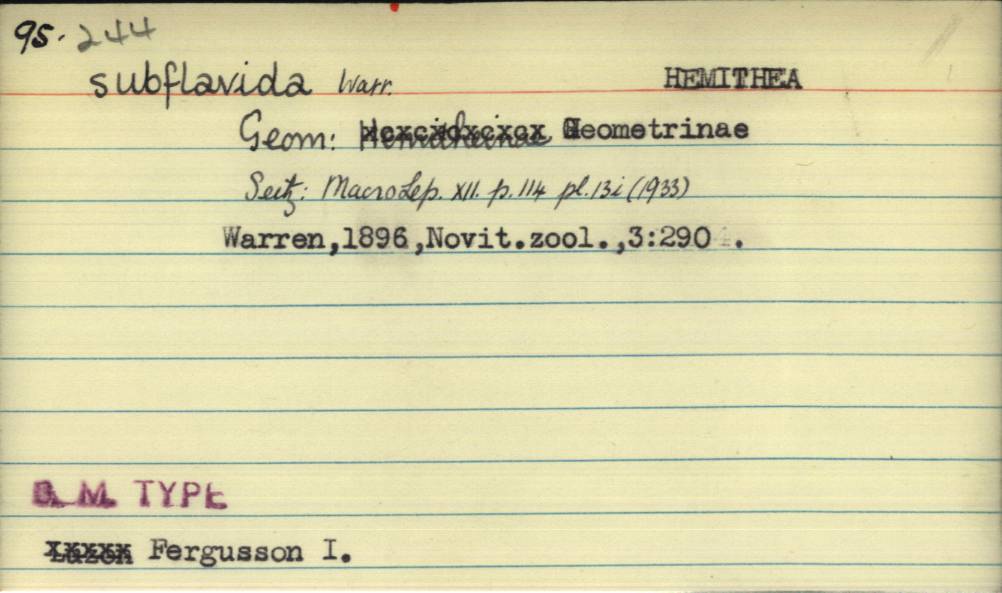 95. 244
subflavida Warr. HEMITHEA
Geom: Hemitheinae Geometrinae
Seitz: MacroLep. XII. p.114 pl.13i (1933)
Warren,1896,Novit.zool.,3:290 .
B. M. TYPE
Luzon Fergusson I.